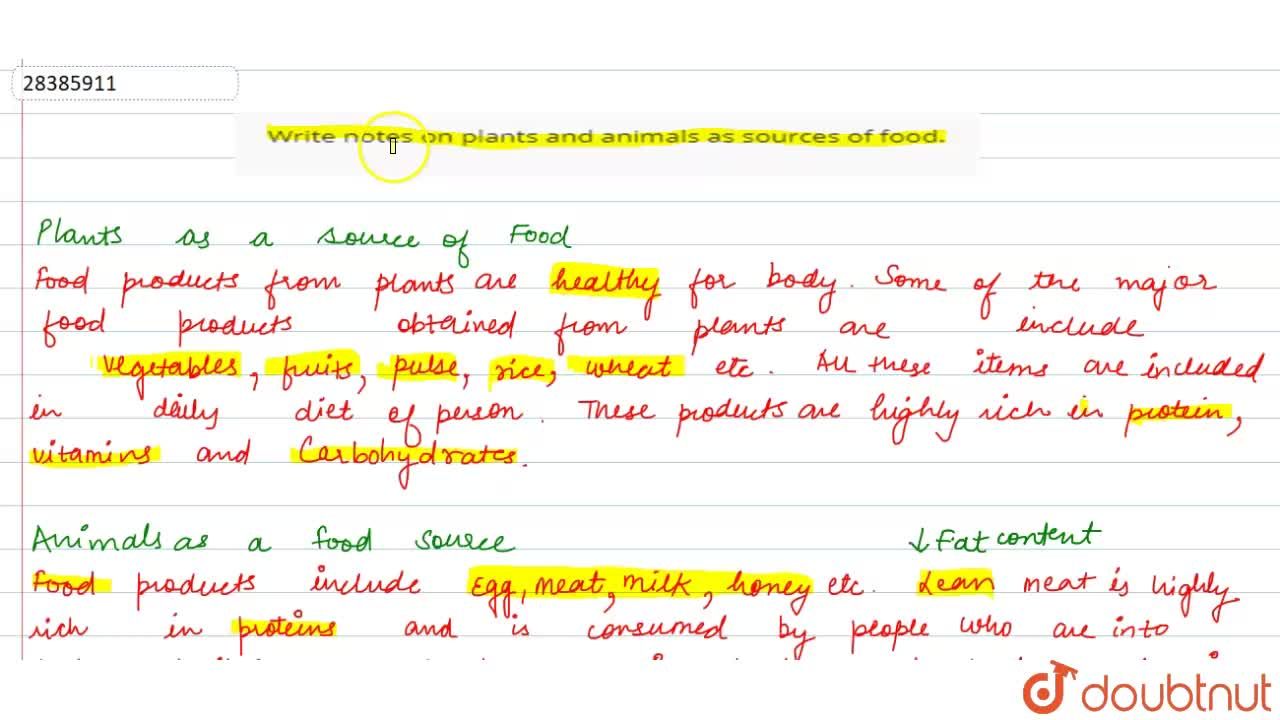 28385911
Write notes on plants and animals as sources of food.
Plants as a source of Food
Food products from plants are healthy for body. Some of the major
food products obtained from plants are include
vegetables, fruits, pulse, rice, wheat etc. All these items are included
in daily diet of person. These products are highly rich in protein,
vitamins and Carbohydrates.
Animals as a food source
↓ Fat content
Food products include Egg, meat, milk, honey etc. Lean meat is highly
rich in proteins and is consumed by people who are into
doubtnut